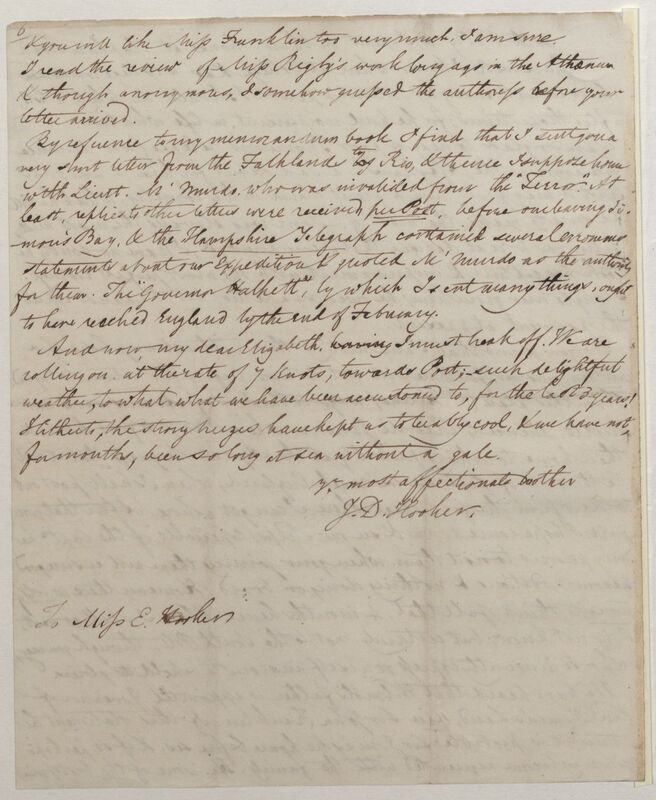 6
& you will like Miss Franklin too very much, I am sure.
I read the review of Miss Rigby's work long ago in the Athenæum
& though anonymous, I somehow guessed the authoress before your
letter arrived.
By reference to my memorandum book I find that I sent you a
very short letter from the Falklands to Rio, & thence I suppose home
with Lieut. Mc Murdo, who was invalided from the "Terror". At
least, replies to other letters were received per Post, before our leaving Si-
-mon's Bay, & the Hampshire Telegraph contained several erroneous
statements about our Expedition & quoted Mc Murdo as the authority
for them. The "Governor Halkett", by which I sent many things, ought
to have reached England by the end of February.
And now my dear Elizabeth, I must break off. We are
rolling on at the rate of 7 Knots, towards Port; such delightful
weather, to what what we have been accustomed to, for the last 3 years!
Hitherto, the strong breezes have kept us tolerably cool, & we have not,
for months, been so long at sea without a gale.
yr most affectionate brother
J. D. Hooker.
To Miss E. Hooker